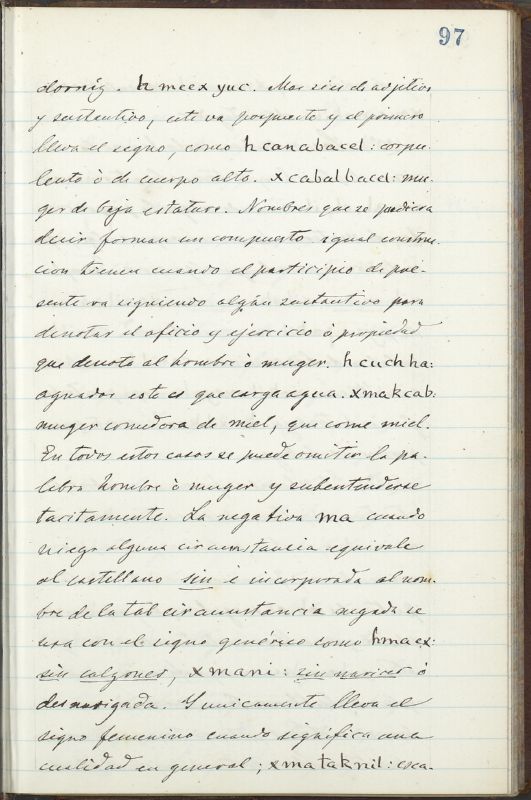 97
dornig. h meex yuc. Mas si es de adjetivo
y sustantivo, este va pospuesto y el primero
lleva el signo, como h canabacel: corpu-
lento ò de cuerpo alto. x cabalbacel: mu-
ger de baja estatura. Nombres que se pudiera
decir forman un compuesto igual construc-
cion tienen cuando el participio de pre-
sente va siguiendo algun sustantivo para
denotar el oficio y ejercicio ò propiedad
que denota al hombre ò muger. h cuch ha:
aguador esto es que carga agua. x makcab:
muger comedora de miel, que come miel.
En todos estos casos se puede omitir la pa-
labra hombre ò muger y subentenderse
tacitamente. La negativa ma cuando
niega alguna circunstancia equivale
al castellano sin è incorporada al nom-
bre de la tal circunstancia negada se
usa con el signo genérico como hmaex:
sin calzones, x mani: sin narices ò
desnarigada. Y unicamente lleva el
signo femenino cuando significa una
cualidad en general; x mataknil: esca-